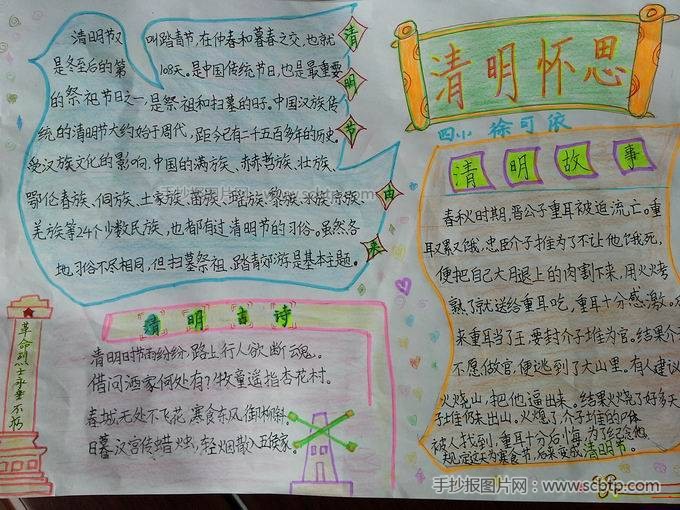 清明节又叫踏青节,在仲春和暮春之交,也就
是冬至后的第108天。是中国传统节日,也是最重要
的祭祖节日之一,是祭祖和扫墓的日子。中国汉族传
统的清明节大约始于周代,距今已有二千五百多年的历史。
受汉族文化的影响,中国的满族、赫哲族、壮族、
鄂伦春族、侗族、土家族、苗族、瑶族、黎族、水族、京族、
羌族等24个少数民族,也都有过清明节的习俗。虽然各
地习俗不尽相同,但扫墓祭祖、踏青郊游是基本主题。
清明节由来
清明怀思
四小 徐可依
清明故事
春秋时期,晋公子重耳被迫流亡。重
取累又饿,忠臣介子推为了不让他饿死,
便把自己大月退上的肉割下来,用火烤
熟了就送给重耳吃,重耳十分感激。
来重耳当了王,要封介子推为官。结果介
不愿做官,便逃到了大山里。有人建议
火烧山,把他逼出来。结果火烧了好多天
子推仍未出山。火熄了,介子推的
被人找到,重耳十分后悔,为了纪念他
规定这天为寒食节,后来变成清明节。
清明古诗
清明时节雨纷纷,路上行人欲断魂。
借问酒家何处有?牧童遥指杏花村。
春城无处不飞花,寒食东风御柳斜。
日暮汉宫传蜡烛,轻烟散入五侯家。
革命烈士永垂不朽
手抄报图片网:www.scbtp.com
手抄报图片网:www.scbtp.com